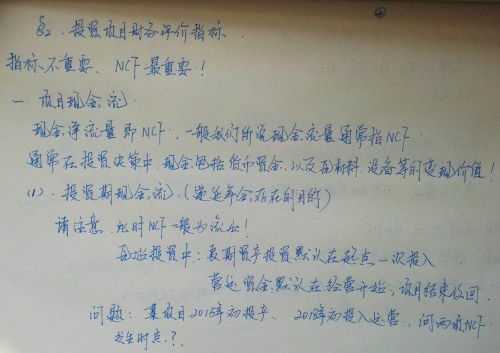 ④
§2. 投资项目财务评价指标.
指标不重要, NCF最重要!
一. 项目现金流.
现金净流量即NCF. 一般我们所说现金流量通常指NCF.
通常在投资决策中, 现金包括货币资金, 以及原材料. 设备等的变现价值!
(1). 投资期现金流. (递延年金存在的目的)
请注意, 此时NCF一般为流出!
原始投资中: 长期资产投资默认在起点一次投入
营运资金默认在经营开始, 项目结束收回.
问题: 某项目2015年初投产, 2018年初投入运营, 问两项NCF
发生时点?